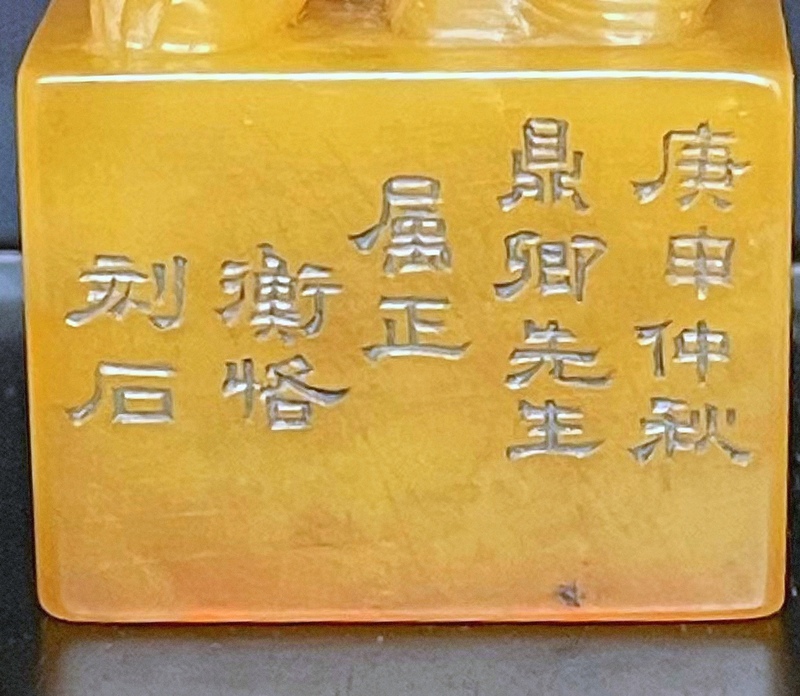 庚申仲秋
鼎卿先生
属正
衡恪
刻石